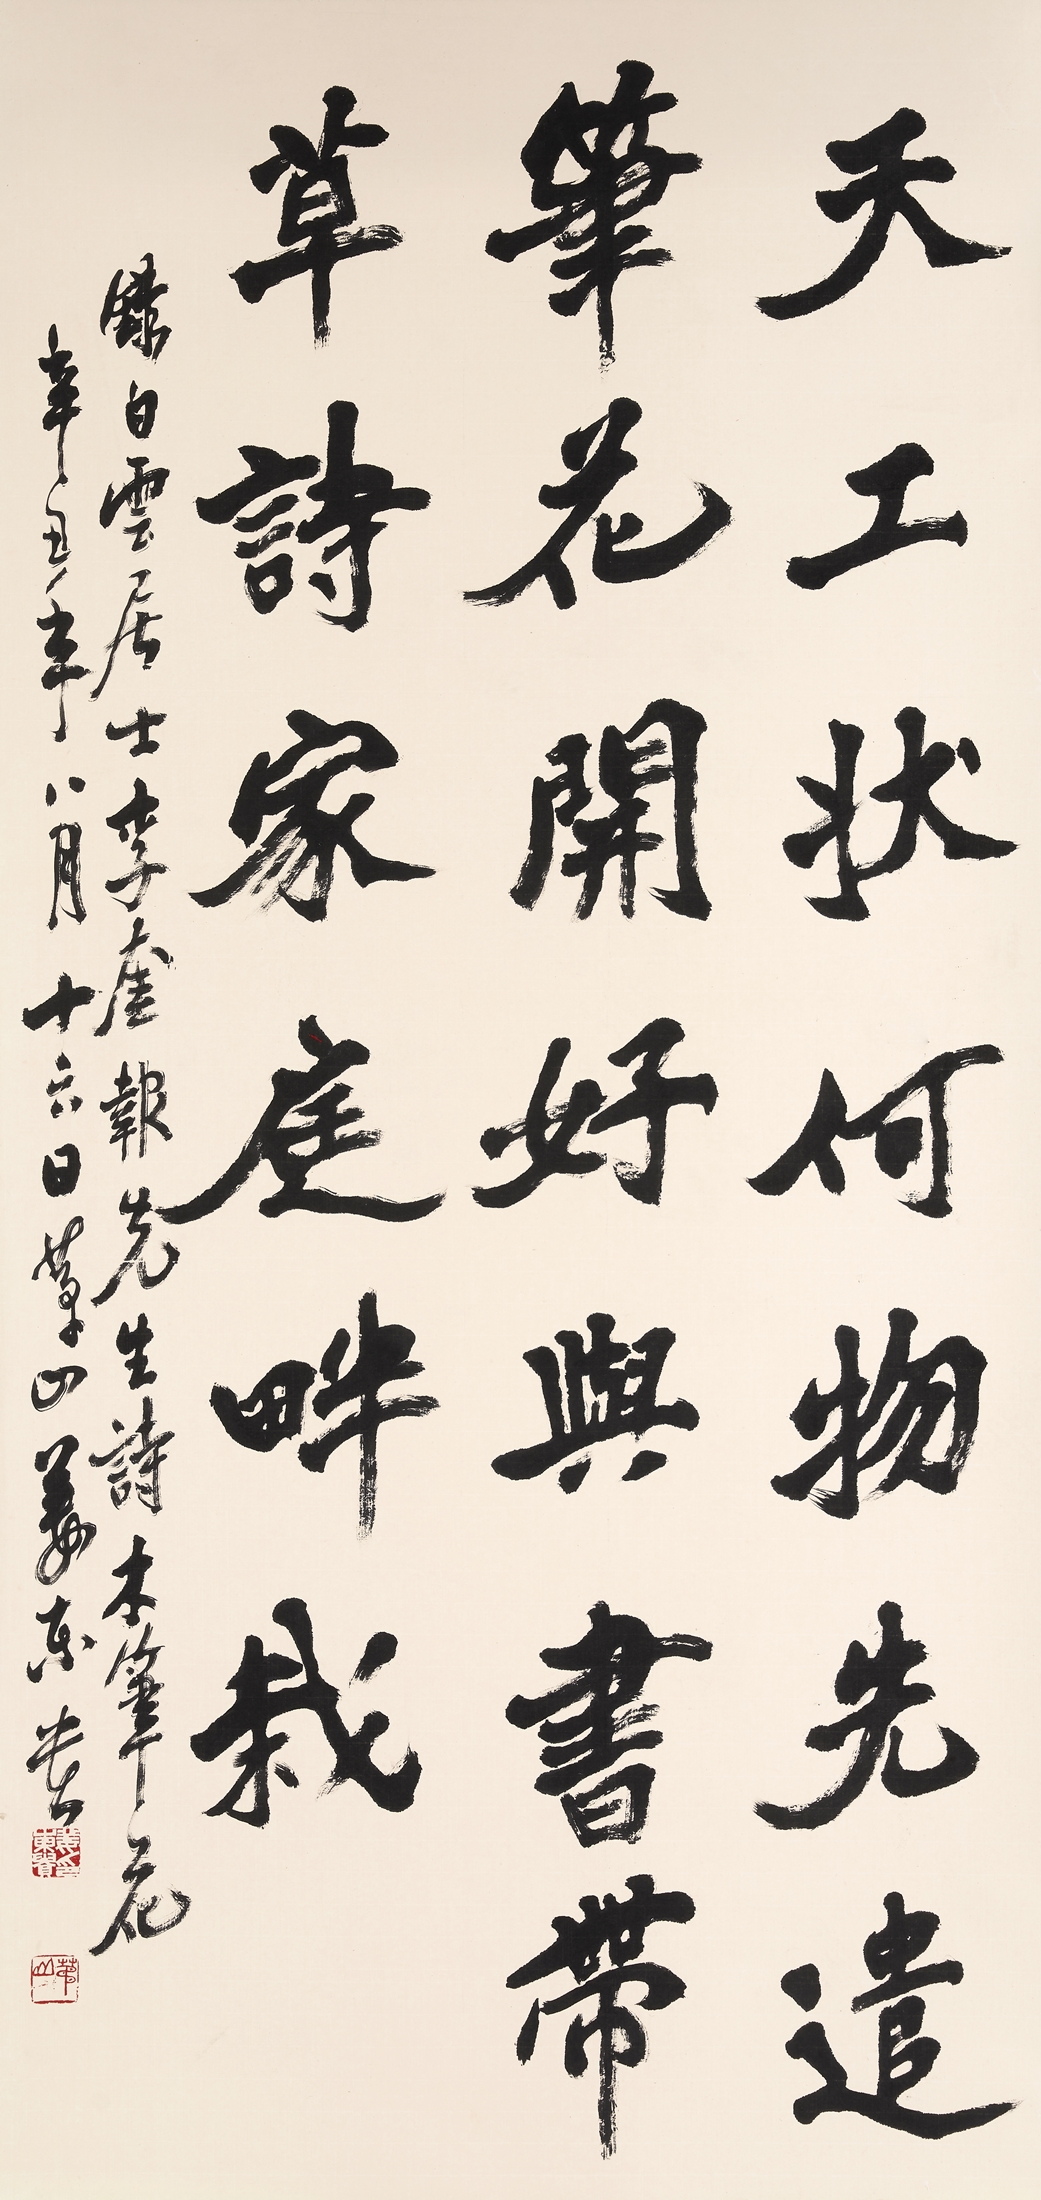 天工狀何物先遣
筆花開好與書帶
草詩家庭畔栽
錄白雲居士李奎報先生詩木筆花
辛丑年八月十六日華山姜東貴